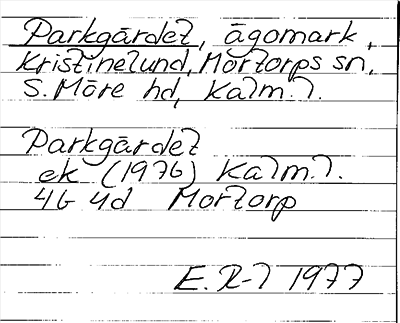 Parkgärdet, ägomark,
Kristinelund, Mortorps sn,
S. Möre hd, Kalm. l.
Parkgärdet
ek (1976) Kalm. l.
4G 4d Mortorp
E. R-l 1977